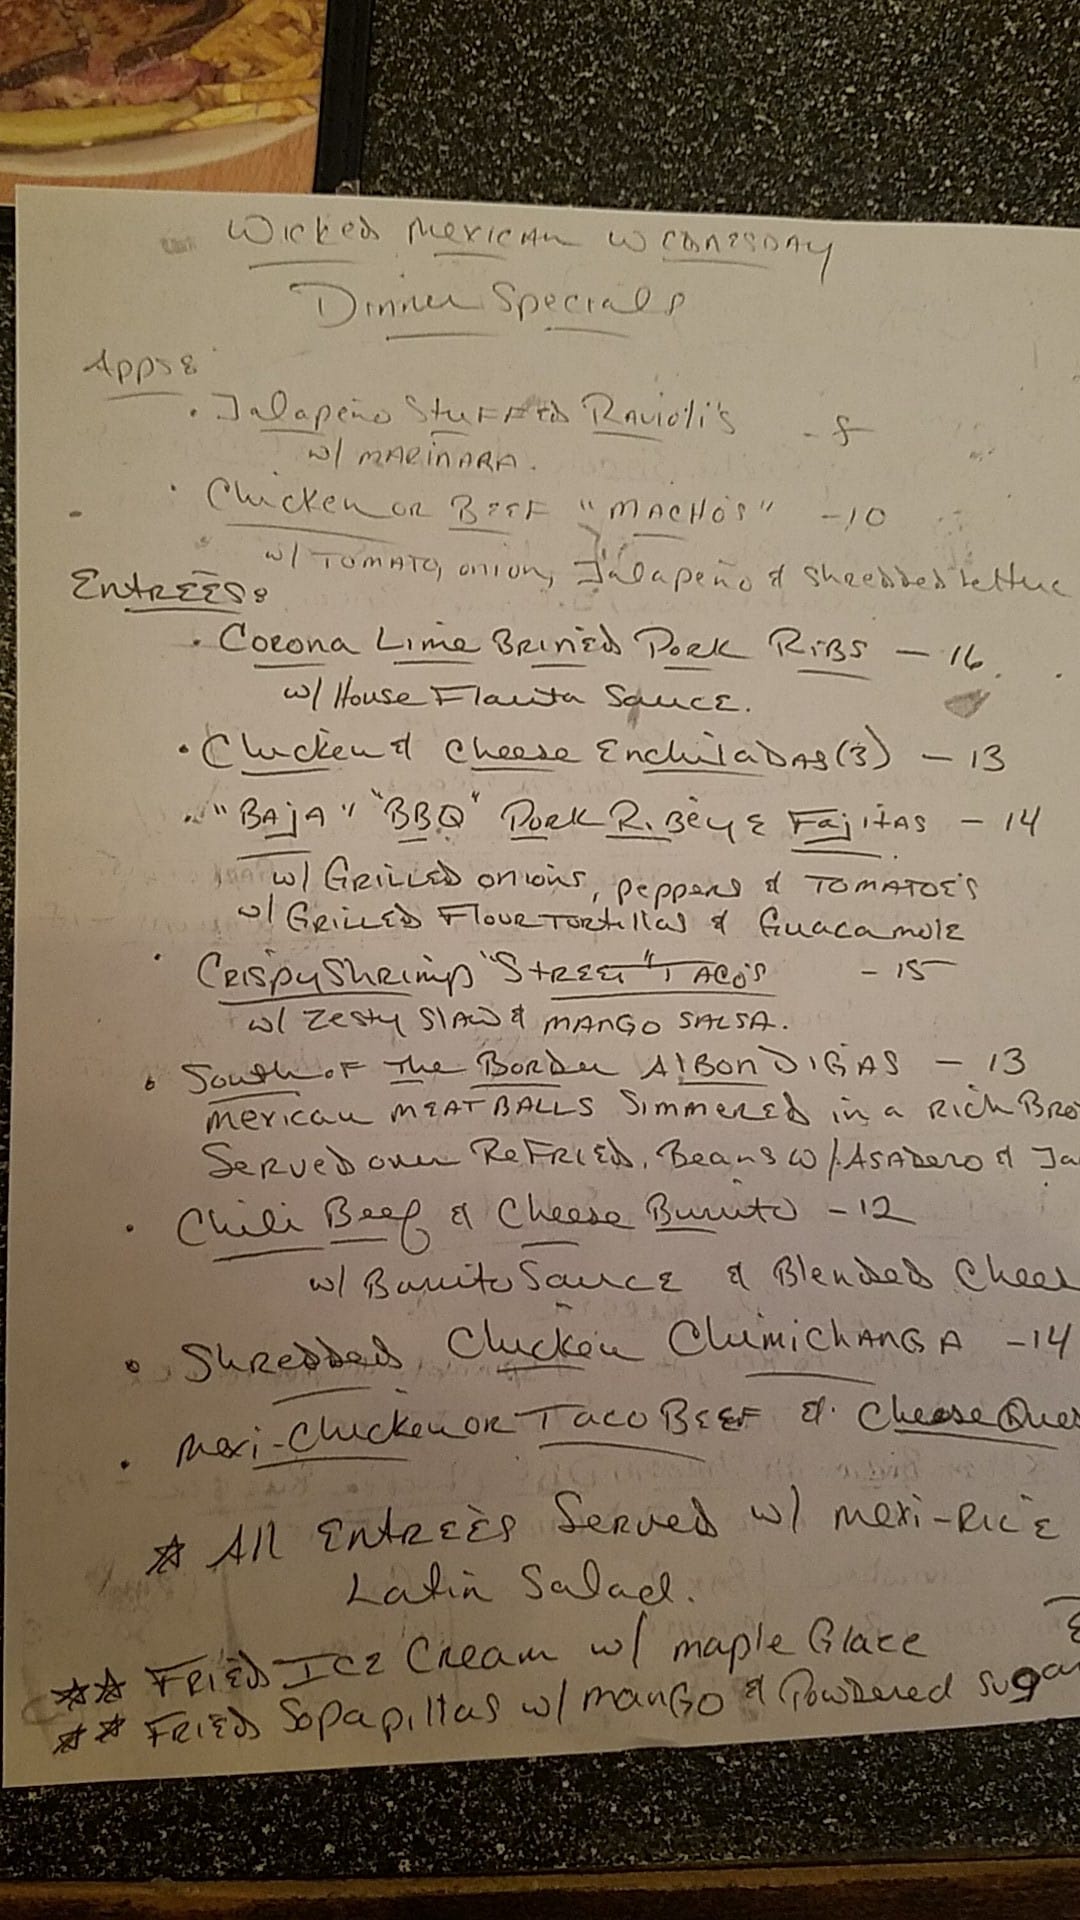 Wicked Mexican Wednesday
Dinner Specials
Apps:
• Jalapeño Stuffed Ravioli's - 8
w/ Marinara.
• Chicken or Beef "Machos" -10
w/ Tomato, onion, Jalapeño & shredded lettuc
Entrées:
• Corona Lime Brined Pork Ribs - 16.
w/ House Flauta Sauce.
• Chicken & Cheese Enchiladas (3) - 13
• "Baja" "BBQ" Pork Ribeye Fajitas - 14
w/ Grilled onions, peppers & Tomatoe's
w/ Grilled Flour Tortillas & Guacamole
• Crispy Shrimp "Street" Taco's - 15
w/ Zesty Slaw & Mango Salsa.
• South of the Border Albondigas - 13
Mexican Meatballs Simmered in a Rich Bro
Served over Refried Beans w/ Asadero & Ja
• Chili Beef & Cheese Burrito - 12
w/ Burrito Sauce & Blended Chees
• Shredded Chicken Chimichanga -14
• Mexi-Chicken or Taco Beef & Cheese Ques
☆ All Entrées Served w/ Mexi-Rice
Latin Salad.
☆☆ Fried Ice Cream w/ maple Glace
☆☆ Fried Sopapillas w/ mango & Powdered sugar